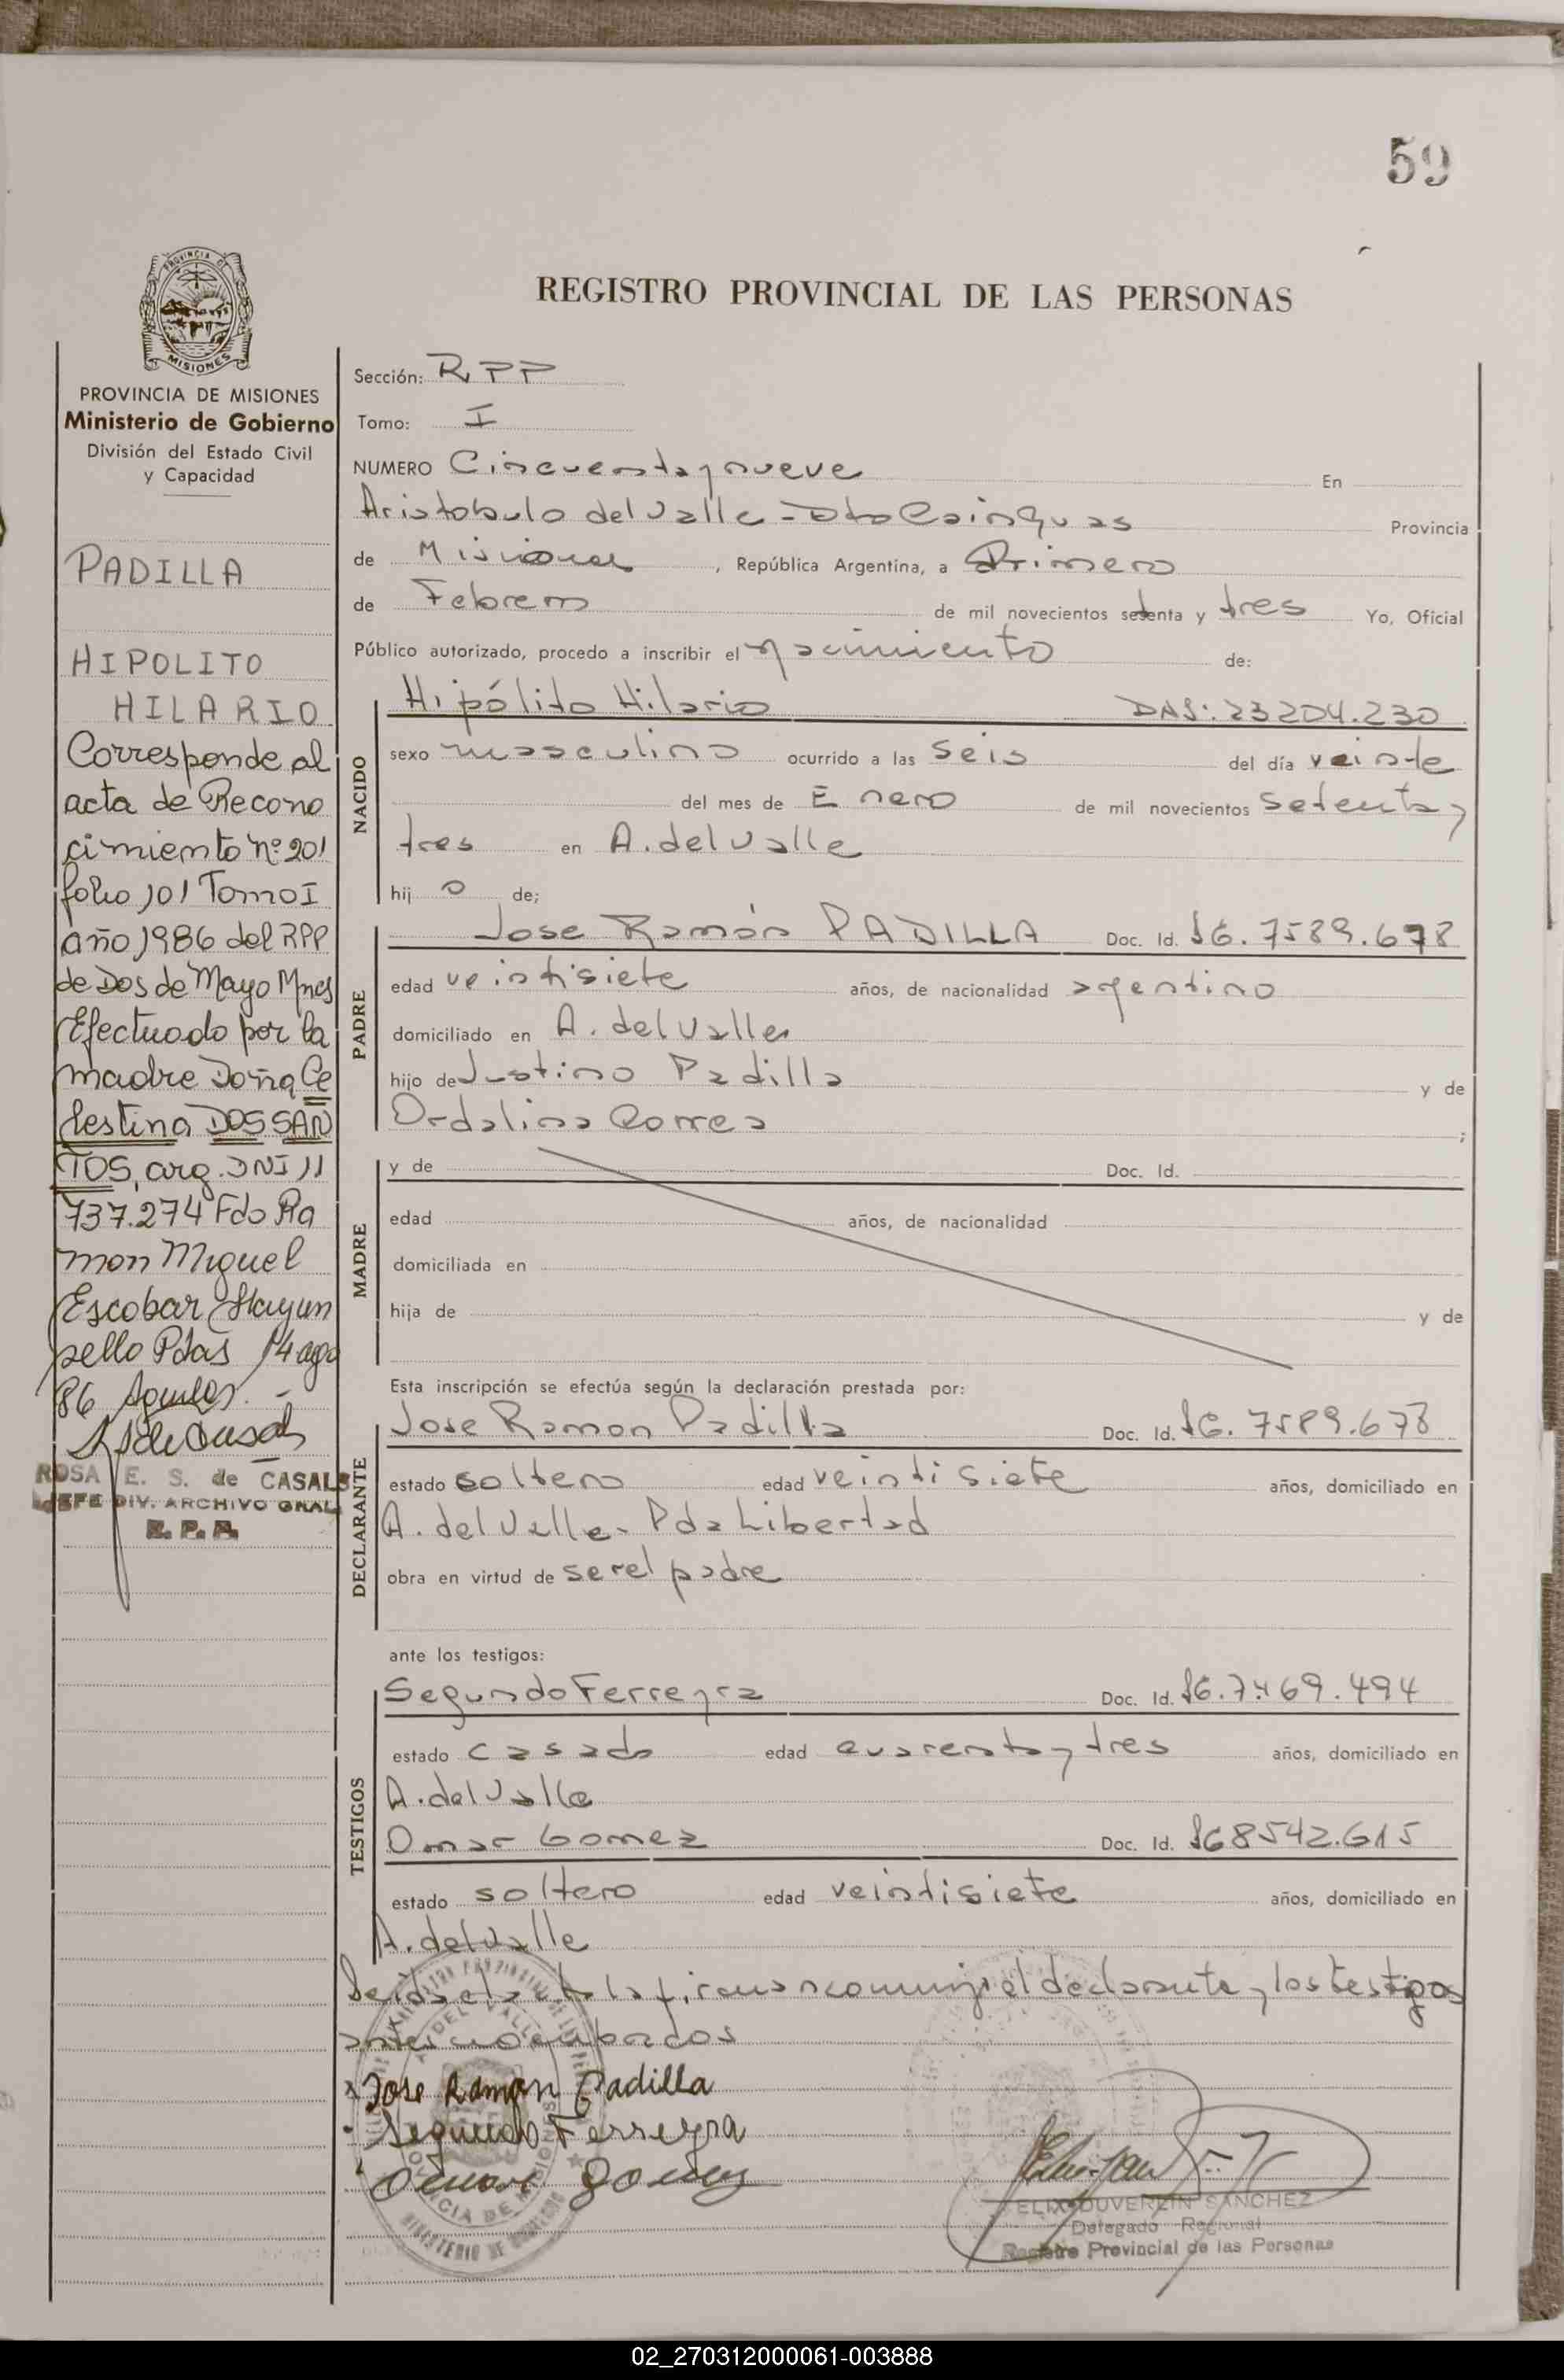 59
PROVINCIA DE
MISIONES
PROVINCIA DE MISIONES
Ministerio de Gobierno
División del Estado Civil
y Capacidad
PADILLA
HIPOLITO
HILARIO
Corresponde al
acta de Recono
cimiento nº 201
folio 101 Tomo I
año 1986 del RPP
de Dos de Mayo Mnes
Efectuado por la
madre Doña Ce
lestina DOS SAN
TOS, arg. DNI 11
737.274 Fdo Ra
mon Miguel
Escobar Hay un
sello Pdas 14 ago
86
ROSA E. S. de CASALS
JEFE DIV. ARCHIVO GRAL
R. P. P.
REGISTRO PROVINCIAL DE LAS PERSONAS
Sección: RPP
Tomo: I
NUMERO Cincuenta y nueve En
Aristobulo del Valle - Dto Cainguas Provincia
de Misiones, República Argentina, a Primero
de Febrero de mil novecientos setenta y tres Yo, Oficial
Público autorizado, procedo a inscribir el nacimiento de:
NACIDO
Hipólito Hilario 23204.230
sexo masculino ocurrido a las seis del día veinte
del mes de Enero de mil novecientos setenta y
tres en A. del Valle
hij o de;
PADRE
Jose Ramón PADILLA Doc. Id. 7589.678
edad veintisiete años, de nacionalidad argentino
domiciliado en A. del Valle
hijo de Justino Padilla y de
Ordalina Correa ;
MADRE
y de Doc. Id.
edad años, de nacionalidad
domiciliada en
hija de y de
Esta inscripción se efectúa según la declaración prestada por:
DECLARANTE
Jose Ramon Padilla Doc. Id. 7589.678
estado soltero edad veintisiete años, domiciliado en
A. del Valle - Pda Libertad
obra en virtud de ser el padre
ante los testigos:
TESTIGOS
Segundo Ferreyra Doc. Id. 7.469.494
estado casado edad cuarenta y tres años, domiciliado en
A. del Valle
Omar Gomez Doc. Id. 8542.615
estado soltero edad veintisiete años, domiciliado en
A. del Valle
Leida el acta la firman conmigo el declarante y los testigos
antes nombrados
Jose Ramon Padilla
Segundo Ferreyra
Omar Gomez
FELIX DUVERLIN SANCHEZ
Delegado Regional
Registro Provincial de las Personas
02_270312000061-003888